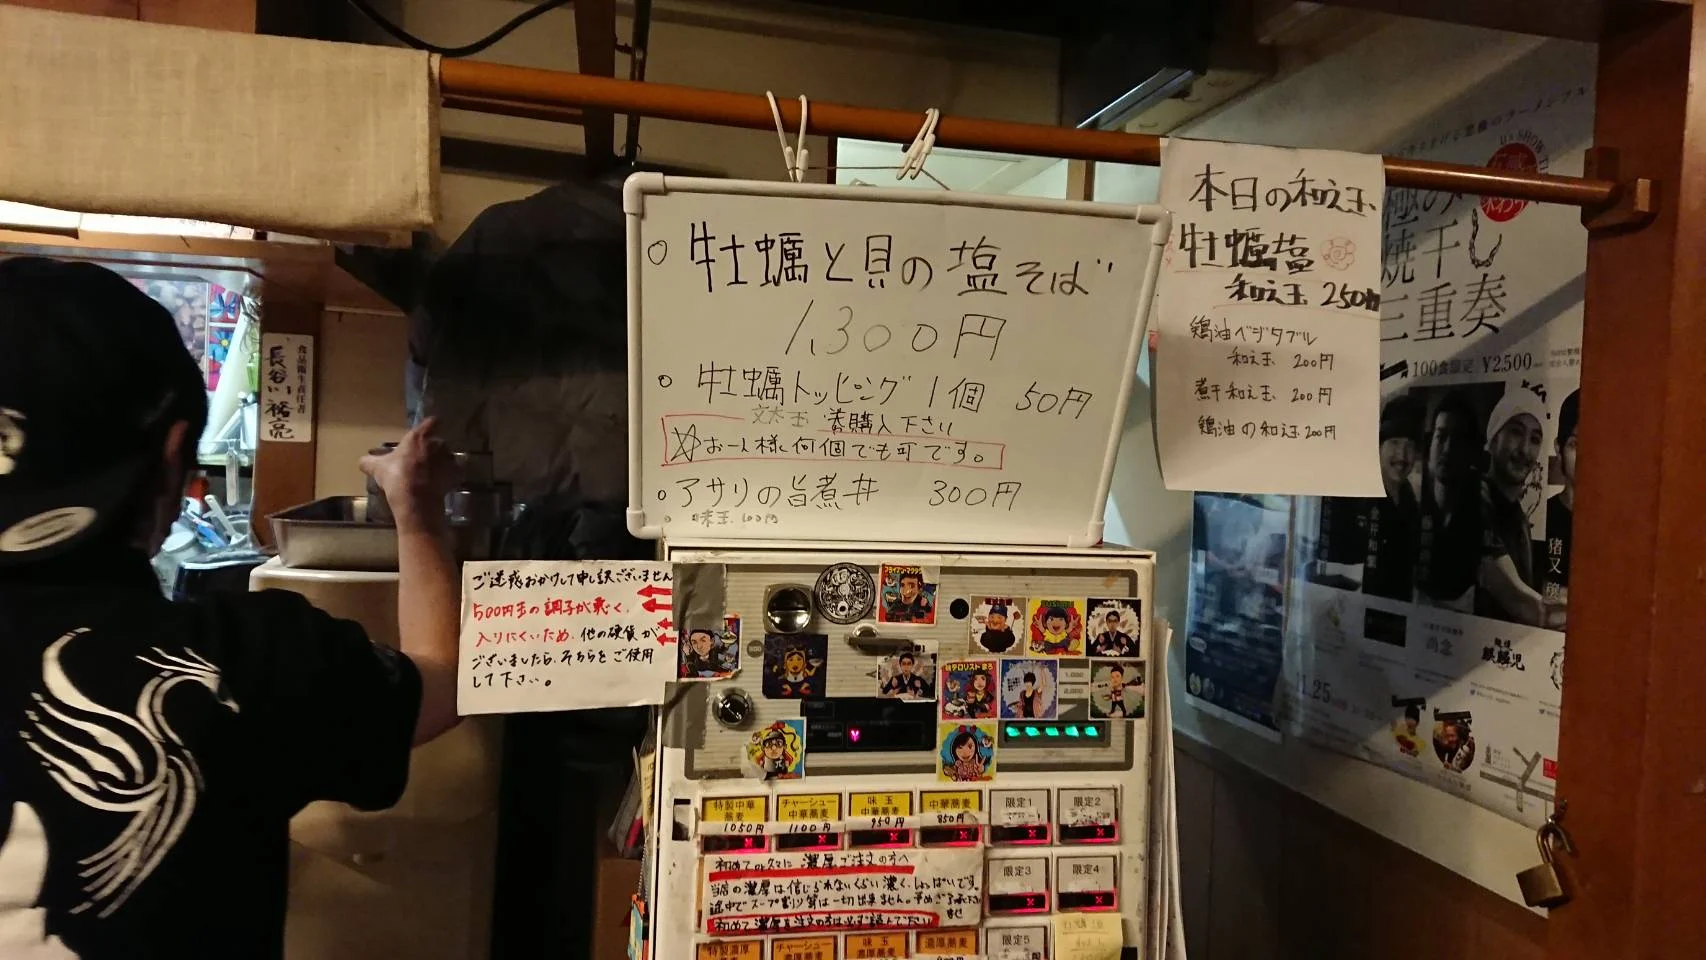 牡蠣と貝の塩そば
1,300円
牡蠣トッピング 1個 50円
購入下さい
☆お一人様何個でも可です。
アサリの旨煮丼 300円
味玉 100円
本日の和え玉
牡蠣塩
和え玉 250円
鶏油ベジタブル
和え玉 200円
煮干和え玉 200円
鶏油の和え玉 200円
食品衛生責任者
長谷川 裕亮
ご迷惑おかけして申し訳ございません
500円玉の調子が悪く、
入りにくいため、他の硬貨が
ございましたら、そちらをご使用
して下さい。
焼干し
三重奏
100食限定 ¥2,500
猪又
麒麟児
11.25
特製中華蕎麦
1050円
チャーシュー中華蕎麦
1100円
味玉中華蕎麦
950円
中華蕎麦
850円
限定1
限定2
限定3
限定4
限定5
初めてor久々に濃厚ご注文の方へ
当店の濃厚は信じられないくらい濃く、しょっぱいです。
途中でスープ割り等は一切出来ません。予めご了承下さいませ
初めて濃厚を注文の方は必ず読んで下さい
特製濃厚
チャーシュー濃厚蕎麦
味玉濃厚蕎麦
濃厚蕎麦